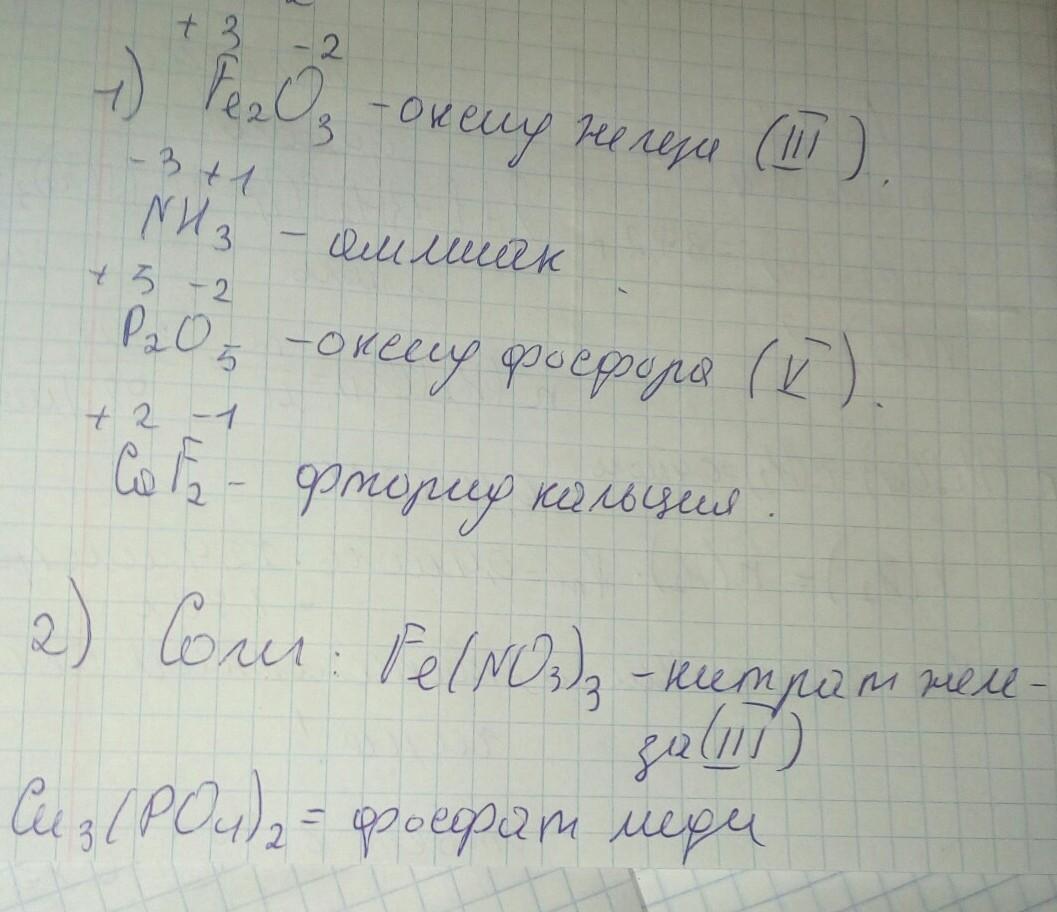 +3 -2
1) Fe2O3 - оксид железа (III).
-3 +1
NH3 - аммиак
+5 -2
P2O5 - оксид фосфора (V).
+2 -1
CaF2 - фторид кальция.
2) Соли: Fe(NO3)3 - нитрат желе-
за(III)
Cu3(PO4)2 = фосфат меди